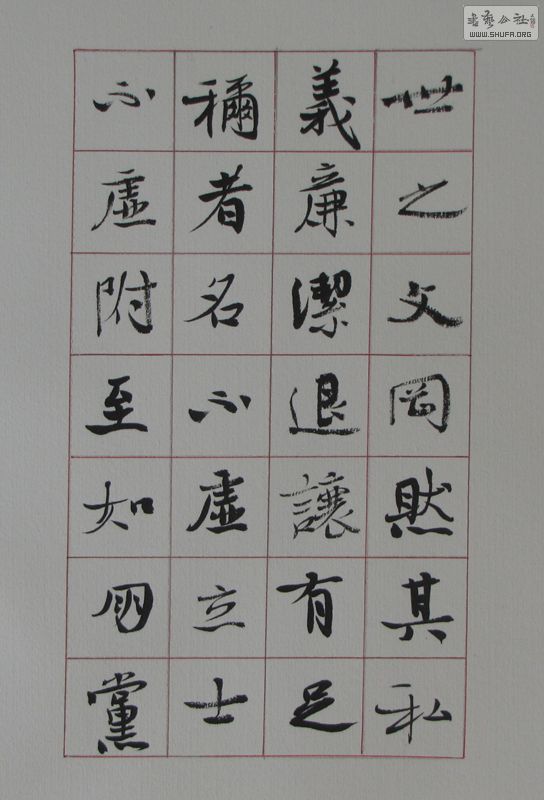 世之文岡然其私
義廉潔退讓有足
稱者名不虛立士
不虛附至如朋黨
書藝公社
WWW.SHUFA.ORG